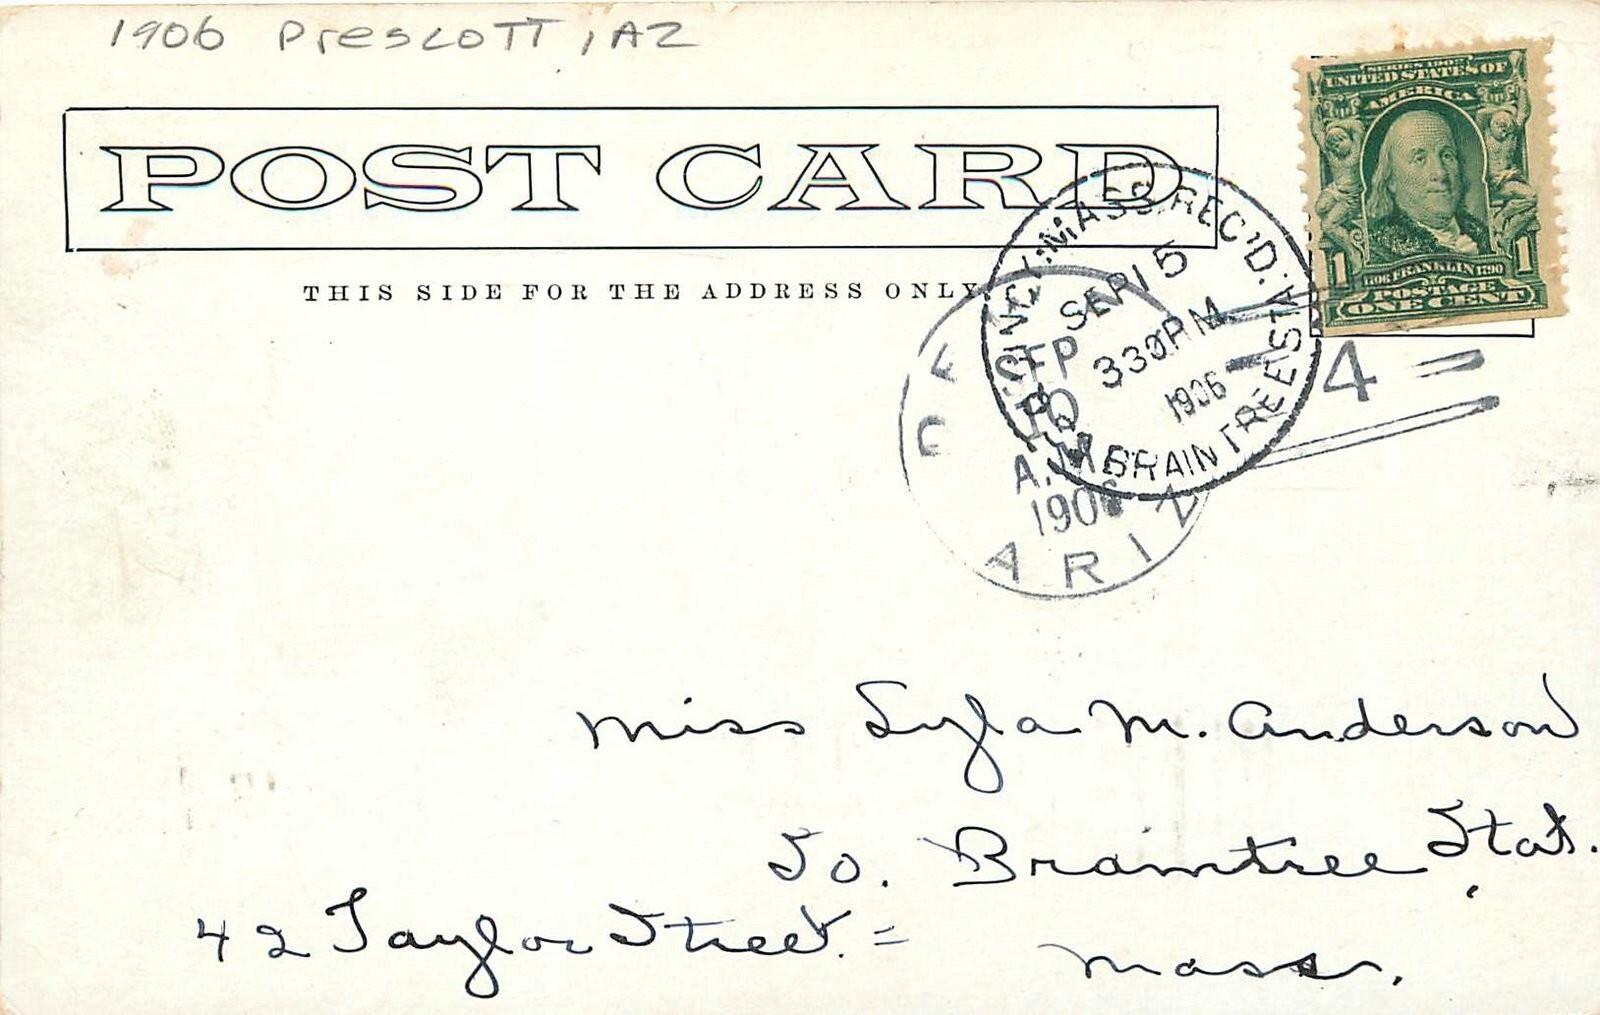 1906 Prescott, AZ
POST CARD
THIS SIDE FOR THE ADDRESS ONLY
SERIES 1902
UNITED STATES OF
AMERICA
1 1706 FRANKLIN 1790 1
POSTAGE
ONE CENT
QUINCY, MASS. REC'D.
SEP 15
330 PM
1906
BRAINTREE STA.
SEP
10
A.M.
1906
ARIZ
4
Miss Lyla M. Anderson
So. Braintree Stat.
42 Taylor Street. =
Mass.